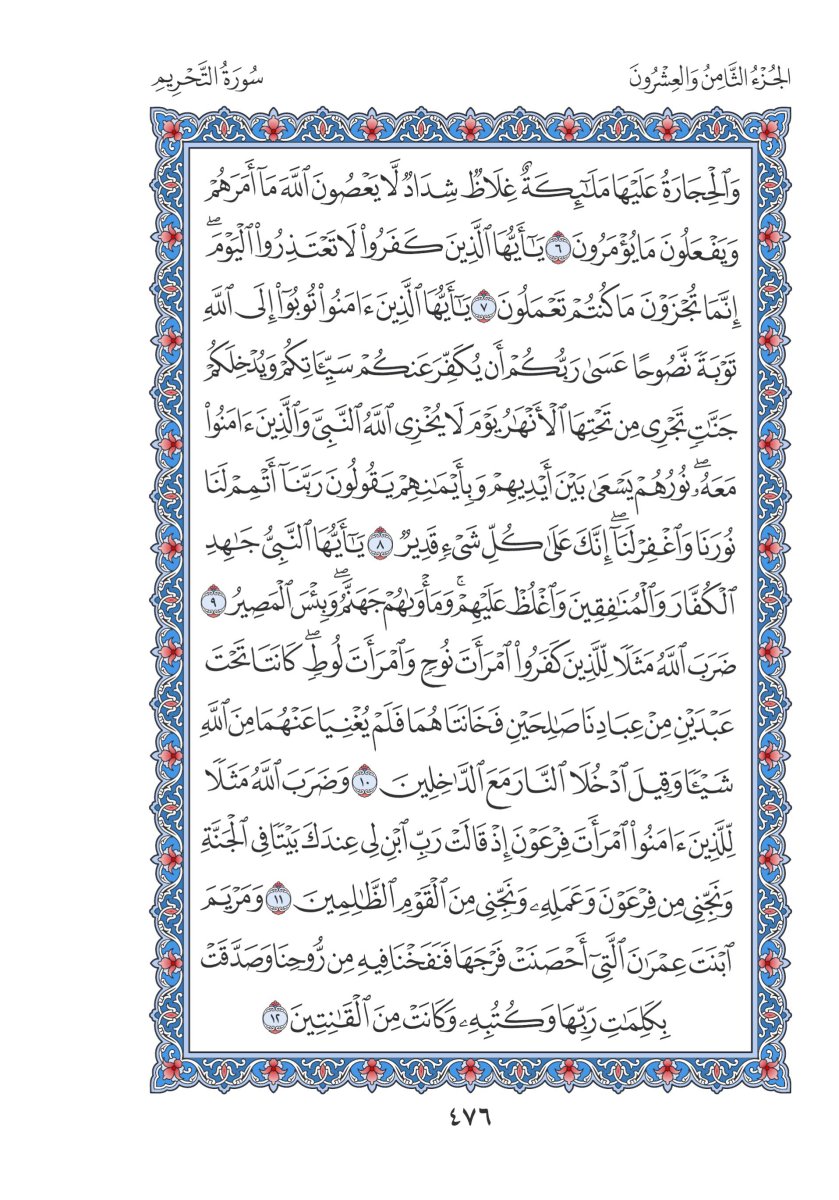 الجُزْءُ الثَّامِنُ وَالعِشْرُونَ
سُورَةُ التَّحْرِيمِ
وَٱلْحِجَارَةُ عَلَيْهَا مَلَٰٓئِكَةٌ غِلَاظٌ شِدَادٌ لَّا يَعْصُونَ ٱللَّهَ مَآ أَمَرَهُمْ
وَيَفْعَلُونَ مَا يُؤْمَرُونَ ٦ يَٰٓأَيُّهَا ٱلَّذِينَ كَفَرُوا۟ لَا تَعْتَذِرُوا۟ ٱلْيَوْمَۖ
إِنَّمَا تُجْزَوْنَ مَا كُنتُمْ تَعْمَلُونَ ٧ يَٰٓأَيُّهَا ٱلَّذِينَ ءَامَنُوا۟ تُوبُوٓا۟ إِلَى ٱللَّهِ
تَوْبَةً نَّصُوحًا عَسَىٰ رَبُّكُمْ أَن يُكَفِّرَ عَنكُمْ سَيِّـَٔاتِكُمْ وَيُدْخِلَكُمْ
جَنَّٰتٍ تَجْرِى مِن تَحْتِهَا ٱلْأَنْهَٰرُ يَوْمَ لَا يُخْزِى ٱللَّهُ ٱلنَّبِىَّ وَٱلَّذِينَ ءَامَنُوا۟
مَعَهُۥۖ نُورُهُمْ يَسْعَىٰ بَيْنَ أَيْدِيهِمْ وَبِأَيْمَٰنِهِمْ يَقُولُونَ رَبَّنَآ أَتْمِمْ لَنَا
نُورَنَا وَٱغْفِرْ لَنَآۖ إِنَّكَ عَلَىٰ كُلِّ شَىْءٍ قَدِيرٌ ٨ يَٰٓأَيُّهَا ٱلنَّبِىُّ جَٰهِدِ
ٱلْكُفَّارَ وَٱلْمُنَٰفِقِينَ وَٱغْلُظْ عَلَيْهِمْۚ وَمَأْوَىٰهُمْ جَهَنَّمُۖ وَبِئْسَ ٱلْمَصِيرُ ٩
ضَرَبَ ٱللَّهُ مَثَلًا لِّلَّذِينَ كَفَرُوا۟ ٱمْرَأَتَ نُوحٍ وَٱمْرَأَتَ لُوطٍۖ كَانَتَا تَحْتَ
عَبْدَيْنِ مِنْ عِبَادِنَا صَٰلِحَيْنِ فَخَانَتَاهُمَا فَلَمْ يُغْنِيَا عَنْهُمَا مِنَ ٱللَّهِ
شَيْـًٔا وَقِيلَ ٱدْخُلَا ٱلنَّارَ مَعَ ٱلدَّٰخِلِينَ ١٠ وَضَرَبَ ٱللَّهُ مَثَلًا
لِّلَّذِينَ ءَامَنُوا۟ ٱمْرَأَتَ فِرْعَوْنَ إِذْ قَالَتْ رَبِّ ٱبْنِ لِى عِندَكَ بَيْتًا فِى ٱلْجَنَّةِ
وَنَجِّنِى مِن فِرْعَوْنَ وَعَمَلِهِۦ وَنَجِّنِى مِنَ ٱلْقَوْمِ ٱلظَّٰلِمِينَ ١١ وَمَرْيَمَ
ٱبْنَتَ عِمْرَٰنَ ٱلَّتِىٓ أَحْصَنَتْ فَرْجَهَا فَنَفَخْنَا فِيهِ مِن رُّوحِنَا وَصَدَّقَتْ
بِكَلِمَٰتِ رَبِّهَا وَكُتُبِهِۦ وَكَانَتْ مِنَ ٱلْقَٰنِتِينَ ١٢
٤٧٦